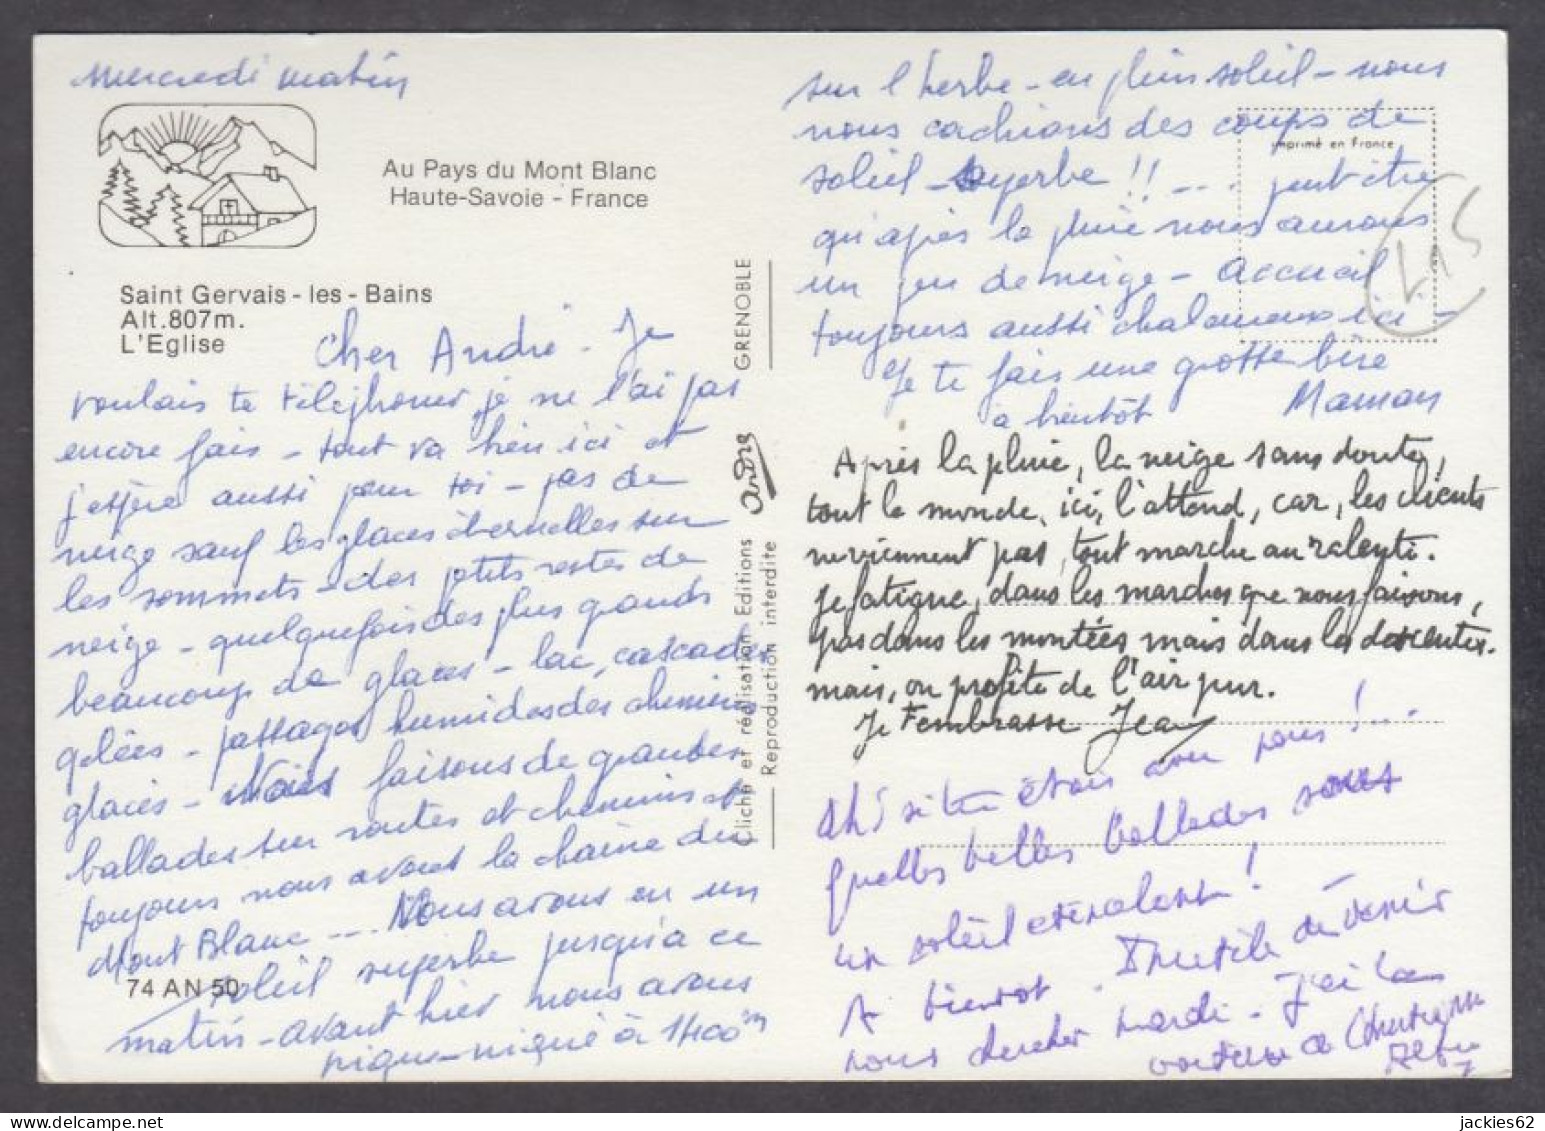 Mercredi matin
Au Pays du Mont Blanc
Haute-Savoie - France
Saint Gervais - les - Bains
Alt. 807m.
L'Eglise
Cher André - Je
voulais te téléphoner, je ne l'ai pas
encore fais - tout va bien ici et
j'espère aussi pour toi - pas de
neige sauf les glaces éternelles sur
les sommets - des petits restes de
neige - quelquefois des plus grands
beaucoup de glaces - lac, cascades
gelées - passages humides des chemins
glacés - Nous faisons de grandes
ballades sur routes et chemins et
toujours nous avons la chaîne du
Mont Blanc ... Nous avons eu un
soleil superbe jusqu'à ce
matin - avant hier nous avons
pique-niqué à 1400m
74 AN 50
sur l'herbe - en plein soleil - nous
nous cachions des coups de
soleil - superbe !! ... peut être
qu'après la pluie nous aurons
un peu de neige - Accueil
toujours aussi chaleureux ici -
Je te fais une grosse bise
à bientôt Maman
imprimé en France
Après la pluie, la neige sans doute,
tout le monde, ici, l'attend, car, les clients
ne viennent pas, tout marche au ralenti.
Je fatigue, dans les marches que nous faisons,
pas dans les montées mais dans les descentes.
mais, on profite de l'air pur.
Je t'embrasse Jean
Ah! si tu étais avec nous ! ...
Quelles belles ballades sous
un soleil !
A bientôt. Inutile de venir
nous chercher mardi. J'ai la
voiture de Christiane
GRENOBLE
André
Cliché et réalisation Editions
Reproduction interdite
jackies62